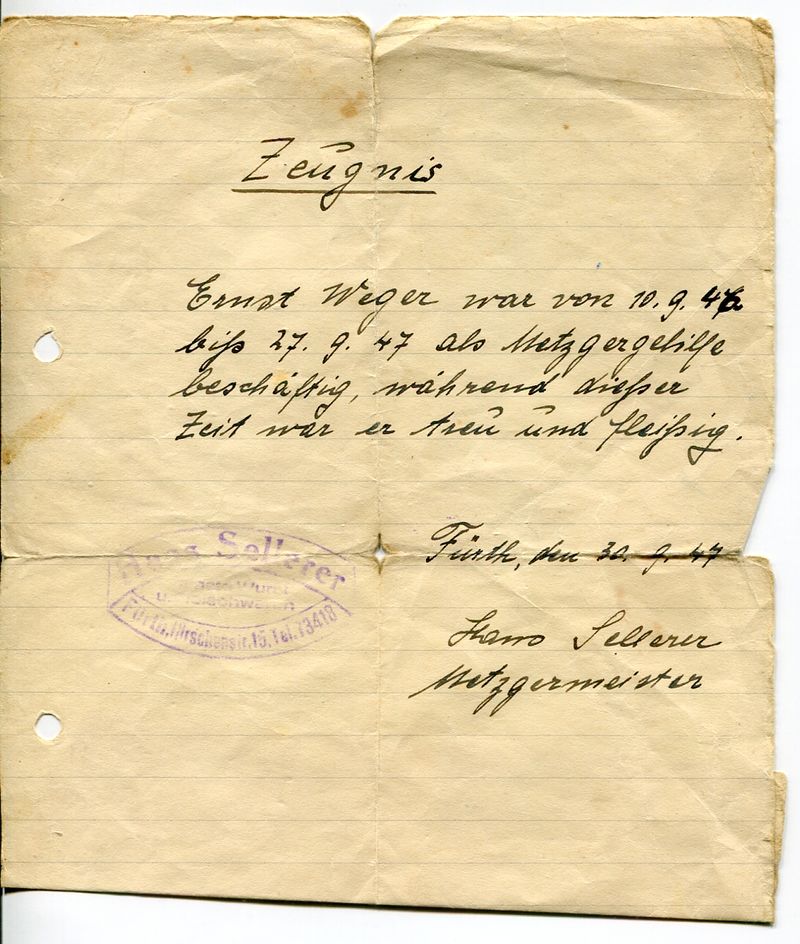 Zeugnis
Ernst Weger war von 10. 9. 46
biß 27. 9. 47 als Metzgergehilfe
beschäftig, während dießer
Zeit war er treu und fleißig.
Fürth, den 30. 9. 47
Hans Sellerer
Metzgermeister
Hans Sellerer
Wurst
u. Fleischwaren
Fürth, Hirschenstr. 15, Tel. 73418